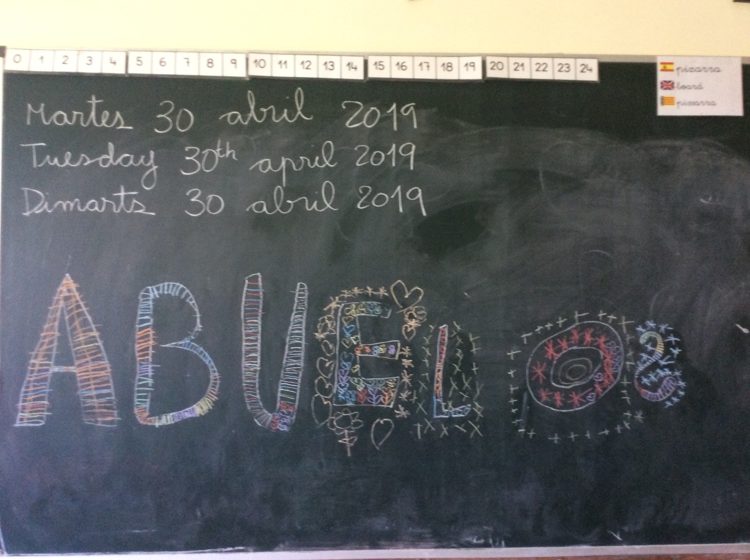 0 1 2 3 4 5 6 7 8 9 10 11 12 13 14 15 16 17 18 19 20 21 22 23 24
pizarra
board
pissarra
Martes 30 abril 2019
Tuesday 30th april 2019
Dimarts 30 abril 2019
ABUELOS